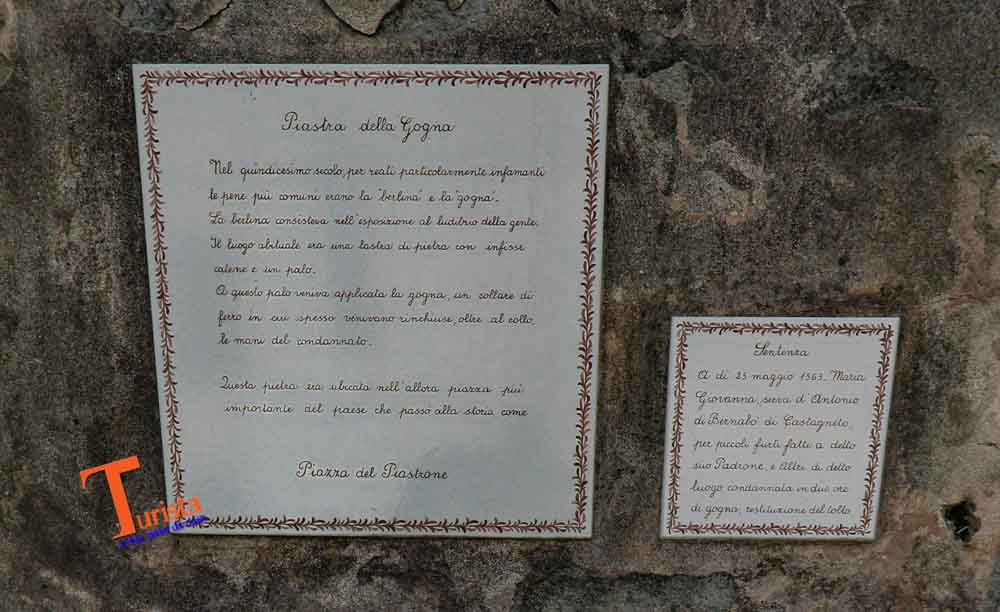 Piastra della Gogna
Nel quindicesimo secolo, per reati particolarmente infamanti
le pene più comuni erano la "berlina" e la "gogna".
La berlina consisteva nell'esposizione al ludibrio della gente.
Il luogo abituale era una lastra di pietra con infisse
catene e un palo.
A questo palo veniva applicata la gogna, un collare di
ferro in cui spesso venivano rinchiuse, oltre al collo,
le mani del condannato.
Questa pietra era ubicata nell'allora piazza più
importante del paese che passò alla storia come
Piazza del Piastrone
Sentenza
A dì 25 maggio 1563. Maria
Giovanna, serva d'Antonio
di Bernabò di Castagneto,
per piccoli furti fatti a detto
suo Padrone, e Altri di detto
luogo condannata in due ore
di gogna, restituzione del tolto
Turista